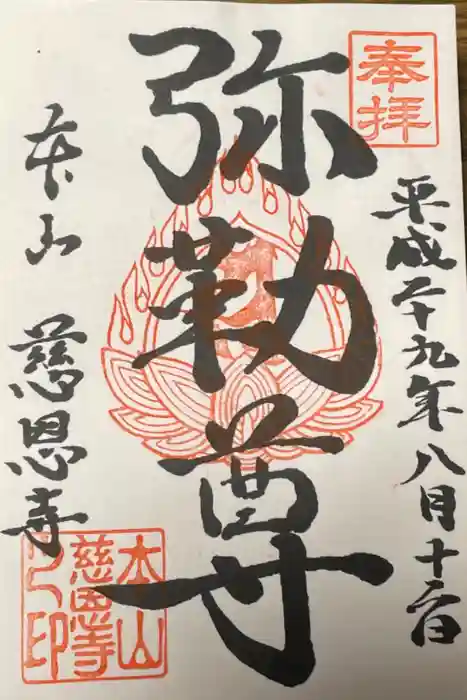 奉拝
平成二十九年八月十二日
弥勒尊
本山 慈恩寺
本山
慈恩寺
之印